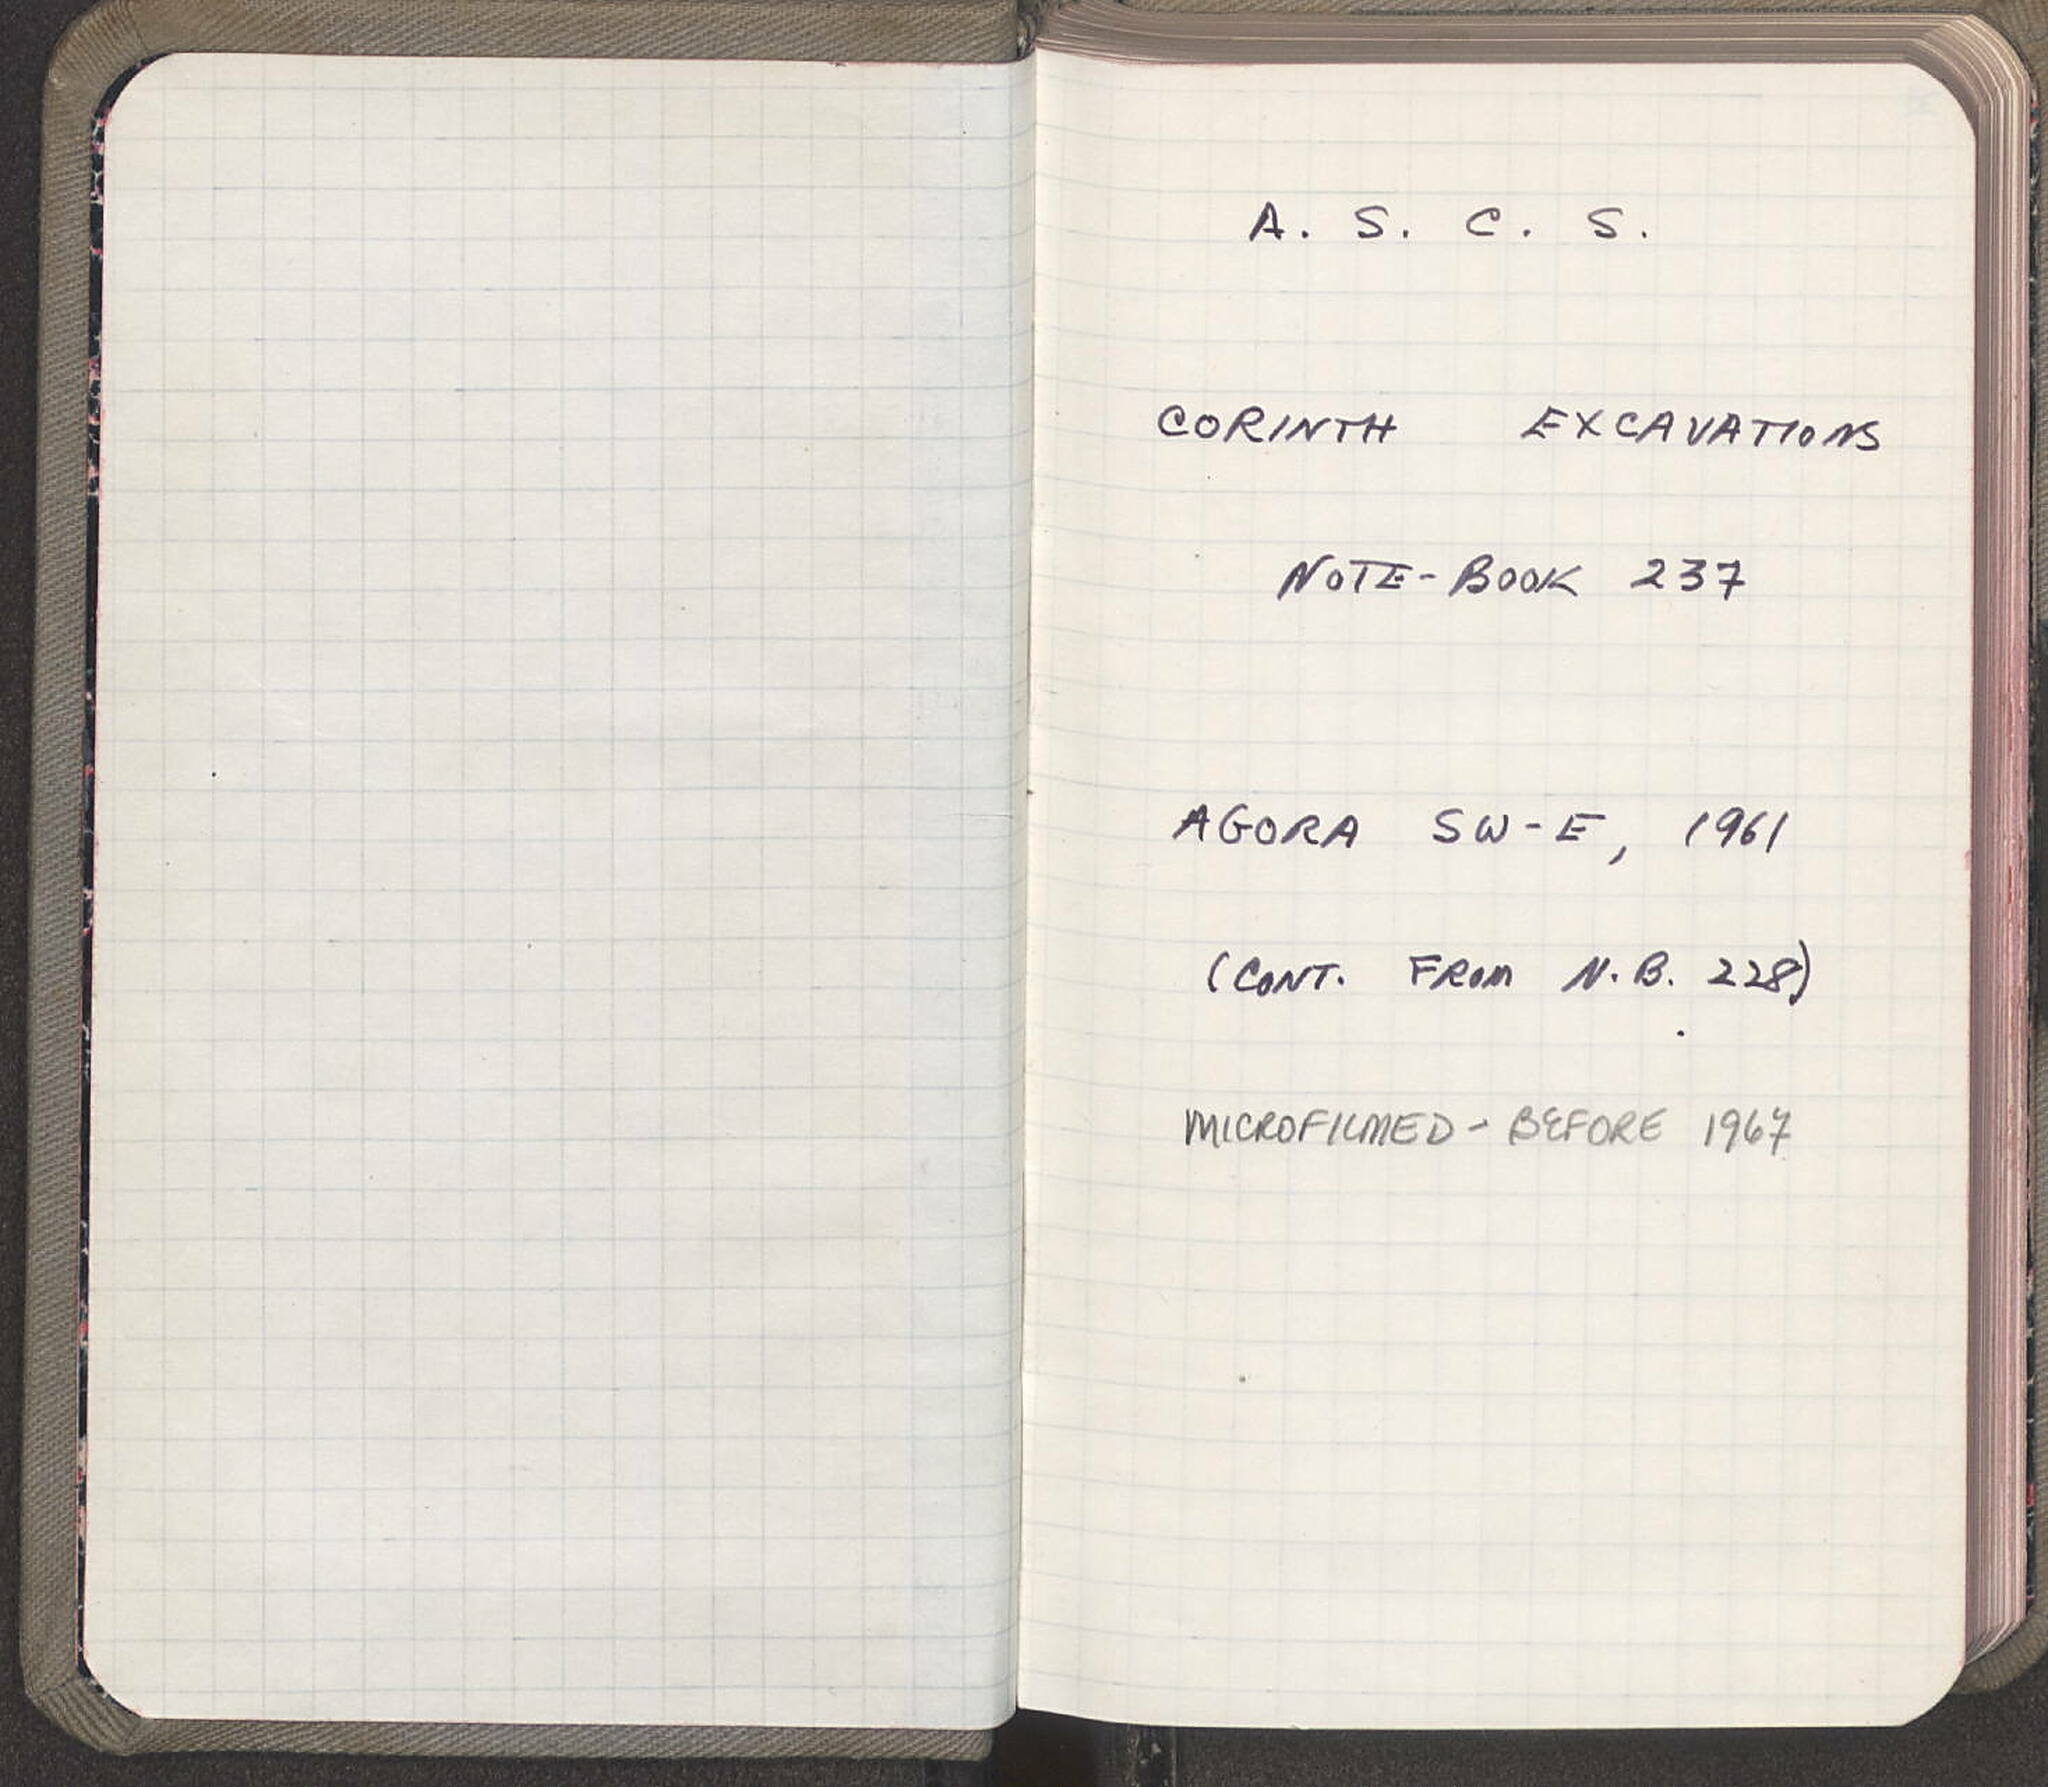 A. S. C. S.
CORINTH EXCAVATIONS
NOTE-BOOK 237
AGORA SW-E, 1961
(CONT. FROM N.B. 228)
MICROFILMED - BEFORE 1967